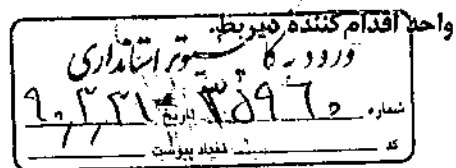 واحد اقدام کننده ذیربط.
ورود به کامپیوتر استانداری
شماره ۳۵۹۶۰ تاریخ ۹۰/۳/۳۱
کد تعداد پیوست